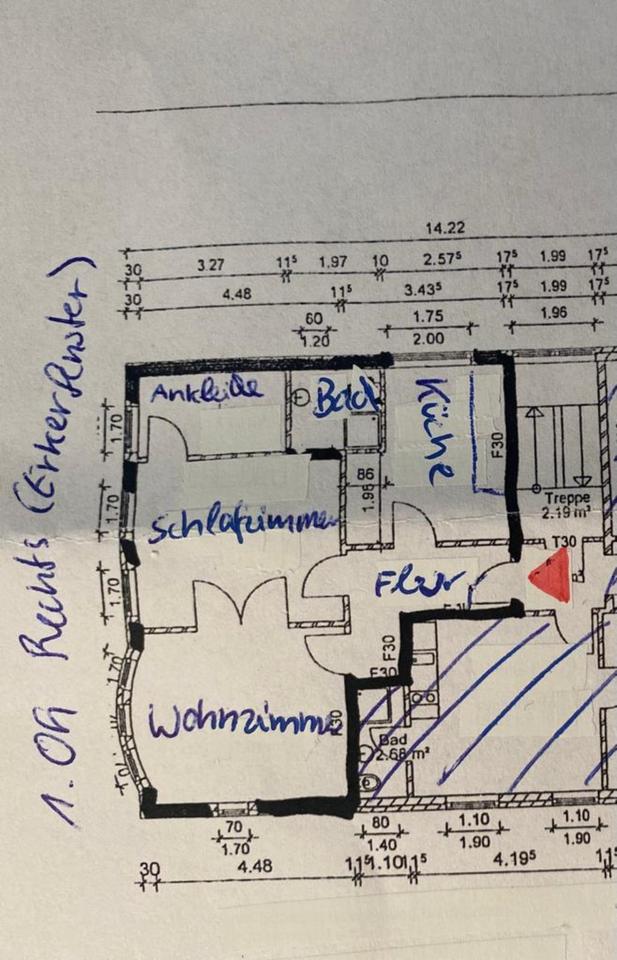 1. OG Rechts (Erkerfenster)
14.22
30 3.27 11⁵ 1.97 10 2.57⁵ 17⁵ 1.99 17⁵
30 4.48 11⁵ 3.43⁵ 17⁵ 1.99 17⁵
60 1.75 1.96
1.20 2.00
Ankleide Bad Küche
1.70
F30
86
1.96
1.70
Schlafzimmer
Treppe
2.19 m²
T30
1.70
Flur
F30
F30
1.70
Wohnzimmer
Bad
2.68 m²
70 80 1.10 1.10
1.70 1.40 1.90 1.90
30 4.48 11⁵ 1.10 11⁵ 4.19⁵ 11⁵